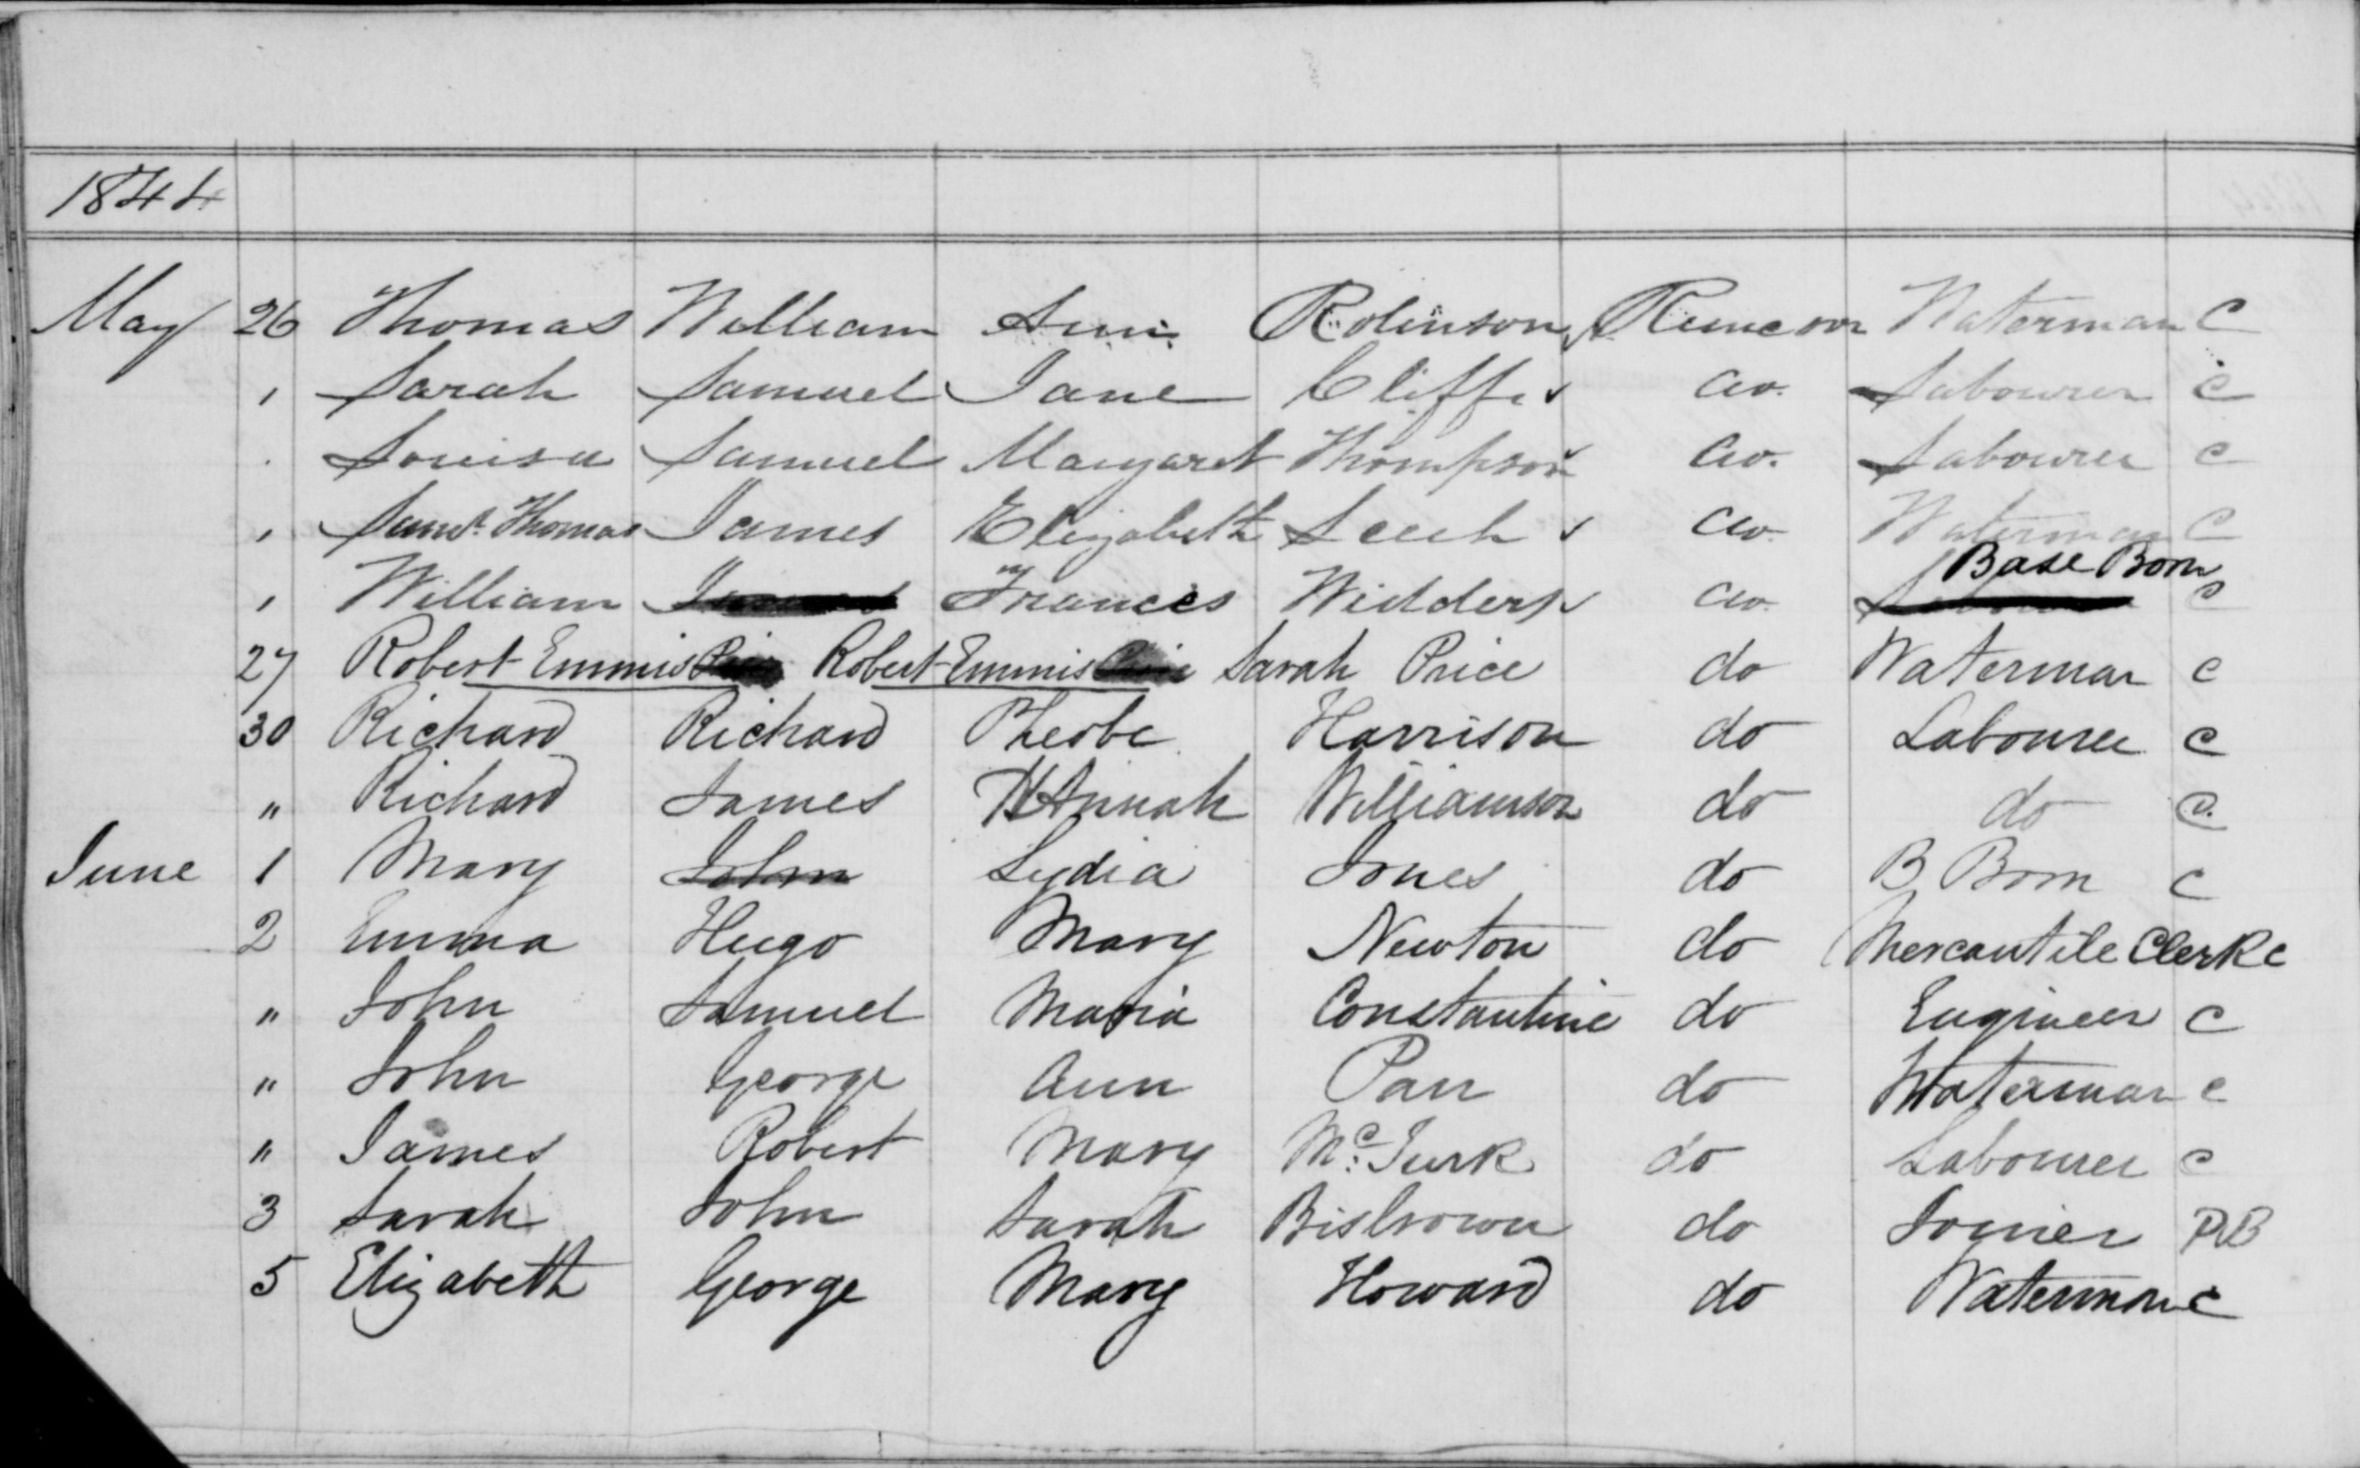 1844
May 26 Thomas William Ann Robinson Runcorn Waterman C
" Sarah Samuel Jane Cliffe do. Labourer C
" Louisa Samuel Margaret Thompson do. Labourer C
" Saml. Thomas James Elizabeth Leech do Waterman C
Base Born
" William Frances Widders do C
27 Robert Emmis Robert Emmis Sarah Price do Waterman C
30 Richard Richard Pheobe Harrison do Labourer C
" Richard James Hannah Williamson do do C.
June 1 Mary John Lydia Jones do B Born C
2 Emma Hugo Mary Newton do Mercantile Clerk C
" John Samuel Maria Constantine do Engineer C
" John George Ann Parr do Waterman C
" James Robert Mary Mc. Turk do Labourer C
3 Sarah John Sarah Bisbrown do Joiner PB
5 Elizabeth George Mary Howard do Waterman C